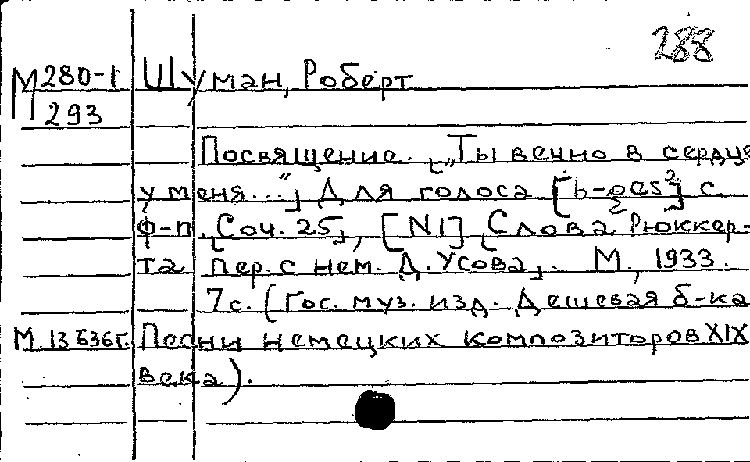 288
М 280-1 Шуман, Роберт
293
Посвящение. [„Ты вечно в сердце
у меня..."] Для голоса [b-ges²] с
ф-п. [Соч. 25], [N1] [Слова Рюккер-
та пер. с нем. Д. Усова]. М., 1933.
7с. (Гос. муз. изд. Дешевая б-ка
М. 13636г. Песни немецких композиторов XIX
века).